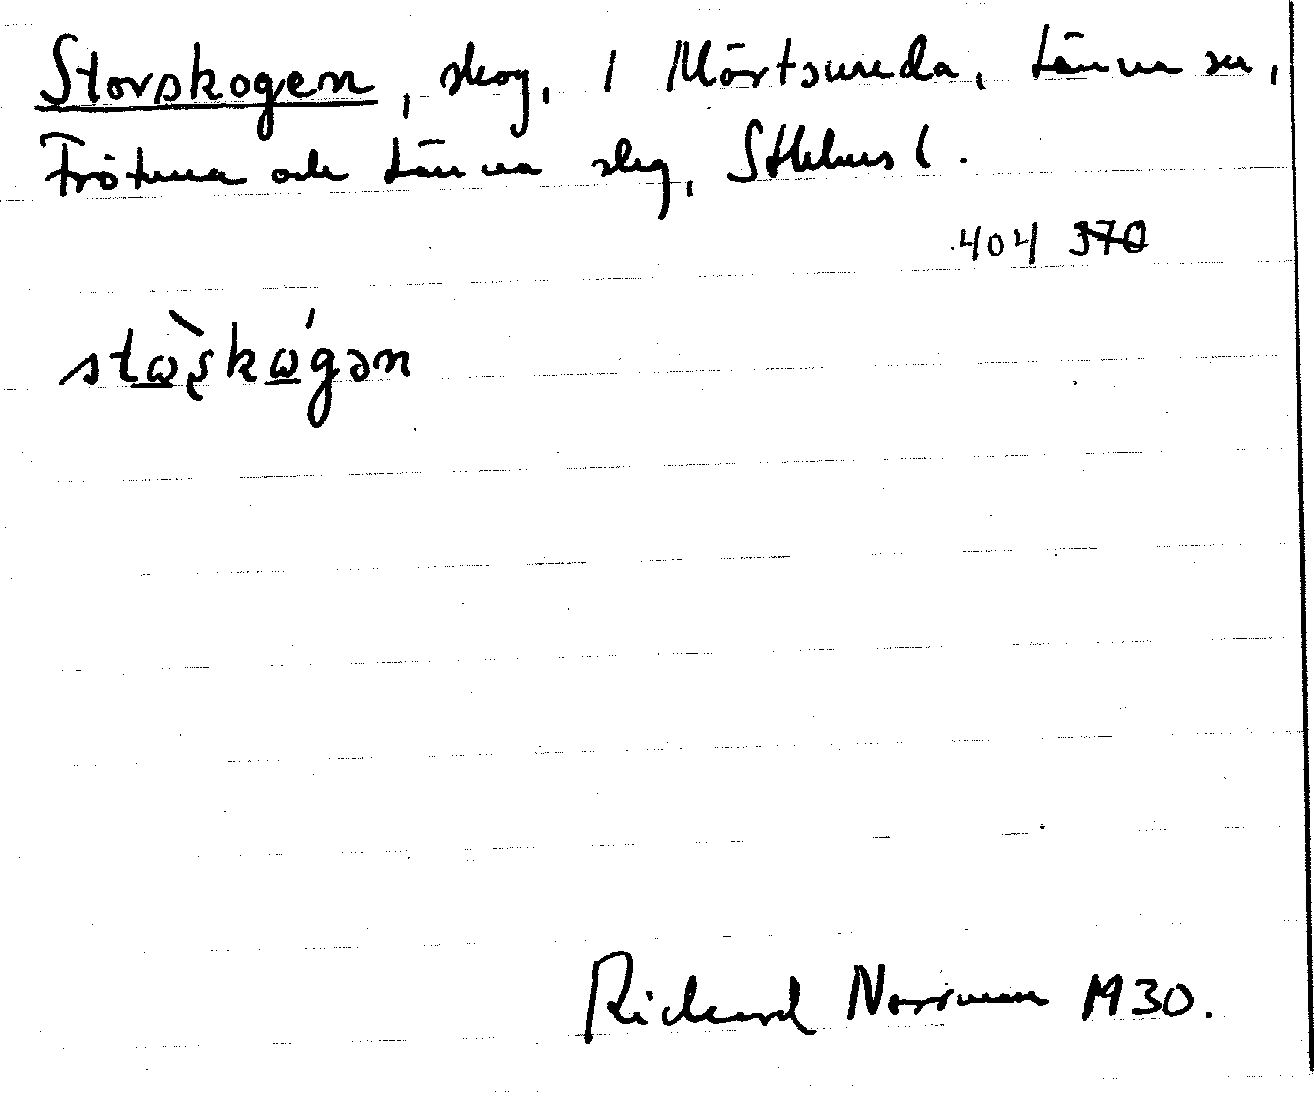 Storskogen, skog, i Mörtsunda, Länna sn,
Frötuna och Länna slg, Sthlms l.
404 370
stὼ̠ʂkώ̠gən
Richard Norrman 1930.